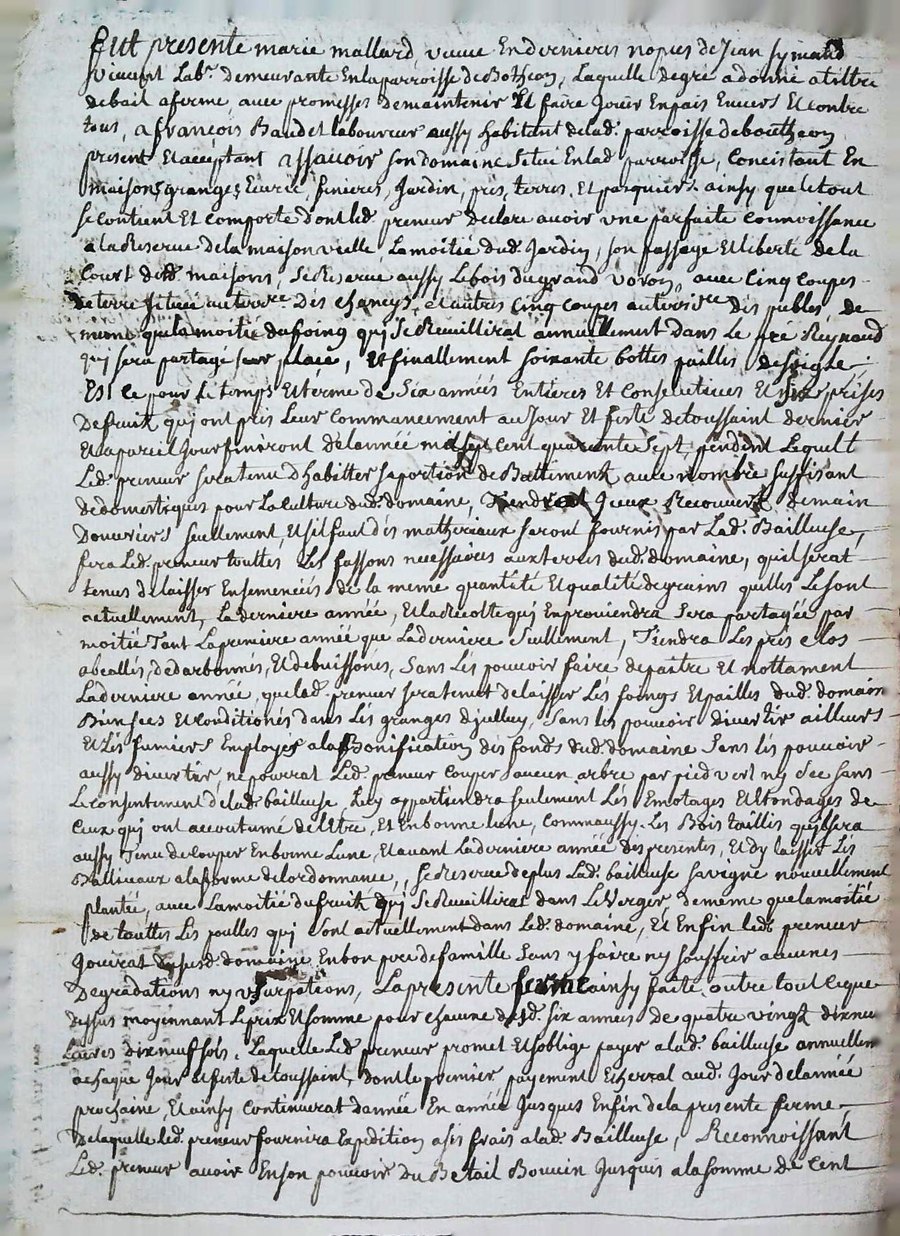 Fut presente marie mallard, veuve En dernieres nopces de Jean
vivant Lab.r demeurante En la parroisse de Botheon, Laquelle de gré a donné a tiltre
de bail a ferme, avec promesses de maintenir Et faire Jouir En paix Envers Et contre
tous, a françois Baudet laboureur aussy habitant de lad. parroisse de boutheon
present Et acceptant assavoir son domaine situé En lad. parroisse, Concistant En
maisons, granges, Ecurie, finieres, Jardin, prés, terres, Et pasquiers ainsy que le tout
se contient Et comporte dont led. preneur declare avoir une parfaite connoissance
a la Reserve de la maison vielle, La moitié dud. Jardin, son passage Et liberté de la
Court desd. maisons, se Reserve aussy Le bois du grand voron, avec Cinq Coupes
de terre située au terroire des chaneys, et autres Cinq Coupes au terroire des publes, de
meme que la moitié du foing qui se Reuillirat annuellement dans Le pré Reynaud
qui sera partagé sur place, Et finallement soixante bottes pailles de soigle
Et Ce pour Le temps Et terme de Six années Entieres Et Consecutives Et six prises
De fruits qui ont pris Leur Commancement au Jour Et feste de toussaint dernier
Et a pareil Jour finiront de lannée mil sept cent quarante sept, pendent Lequel t
Led. preneur sera tenu d'habitter sa portion de Battiment avec nombre suffisant
de domestiques pour La Culture dud. domaine, Tiendrat Iceux Recouvert de main
Douvriers seullement, Et s'il faut des matheriaux seront fournis par Lad. Bailleuse,
fera Led. preneur touttes Les fassons necessaires aux terres dud. domaine, quil serat
tenus de laisser Ensemencées de la meme quantité Et qualité de grains quelles Le sont
actuellement, La derniere année, Et la recolte qui En proviendra sera partagée par
moitié Tant La premiere année que La derniere seullement, Tiendra Les prés clos
abeallés, dedarbonnés, Et debuissonés, sans Les pouvoir faire depaitre Et nottament
La derniere année, que led. preneur serat tenut de laisser Les foings Et pailles dud. domain
Bien secs Et conditionés dans Les granges d'jcelluy, sans les pouvoir divertir ailleurs
Et Les fumiers Employés a la Bonification des fonds dud. domaine sans les pouvoir
aussy divertir, ne pourrat Led. preneur Couper aucun arbre par pied vert ny sec sans
Le consentement de lad. bailleuse, Luy appartiendra seulement Les Emotages Et tondages de
Ceux qui ont accoutumé de Létre, Et En bonne lune, Comm'aussy Les Bois taillis quil sera
aussy Tenu de couper En bonne Lune, Et avant La derniere année des presentes, Et d'y laisser Les
Balliveaux a la forme de lordonnance, se Reserve de plus Lad. bailleuse sa vigne nouvellement
plantée, avec La moitié du fruit qui se Reuillirat dans Le Verger, de meme que la moitié
de touttes Les poulles qui sont actuellement dans Led. domaine, Et Enfin led. preneur
Jouirat dud. domaine En bon pere de famille sans y faire ny souffrir aucunes
Degradations ny usurpations, La presente ferme ainsy faite outre tout Ce que
dessus moyennant Le prix Et somme pour chacune desd. six années de quatre vingt dix neu
Livres dix neuf sols, Laquelle Led. preneur promet Et s'oblige payer a lad. bailleuse annuellem
a chaque Jour Et feste de toussaint, dont le premier payement Echerrat aud. Jour de lannée
prochaine, Et ainsy Continuerat d'année En année Jusques En fin de la presente ferme
De laquelle led. preneur fournira Expedition a ses frais a lad. Bailleuse, Reconnoissant
Led. preneur avoir En son pouvoir du Betail Bouvin Jusques a la somme de Cent